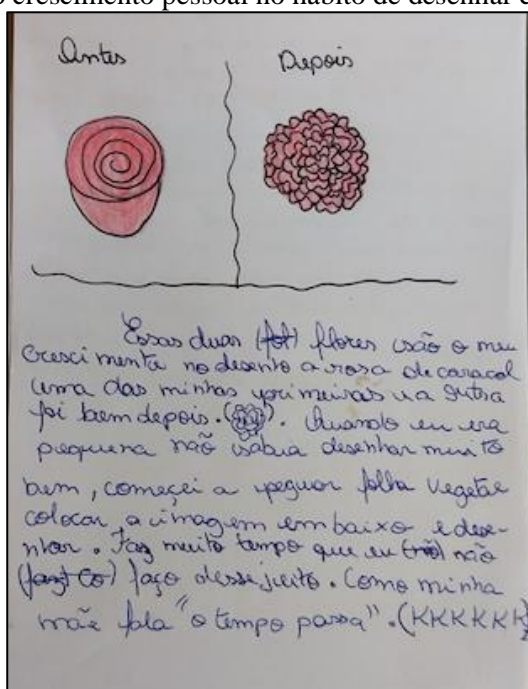 o crescimento pessoal no hábito de desenhar
Antes
Depois
Essas duas (fol) flores são o meu
crescimento no desenho a rosa de caracol
uma das minhas primeiras e a outra
foi bem depois. ( ). Quando eu era
pequena não sabia desenhar muito
bem, começei a peguar folha vegetal
colocar, a imagem embaixo e dese-
nhar. Faz muito tempo que eu (não) não
faço desse jeito. Como minha
mãe fala "o tempo passa". (KKKKKK)